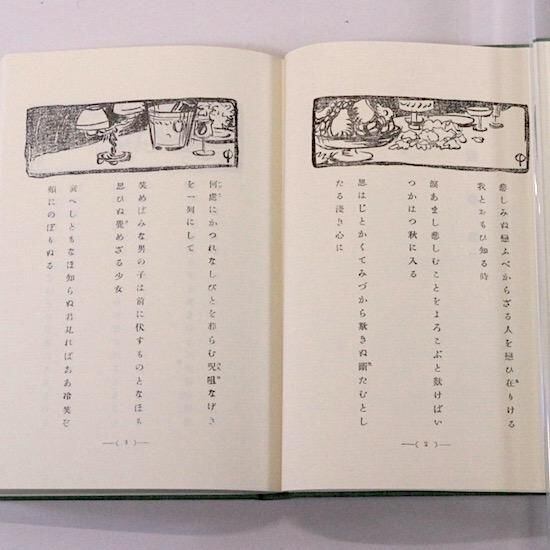 悲しみぬ戀ふべからざる人を戀ひ在りける
我とおもひ知る時
涙あまし悲しむことをよろこぶと歎けばい
つかはつ秋に入る
思はじとかくてみづから欺きぬ たむとし
たる淺き心に
—( 2 )—
何處にかつれなしびとを葬らむ呪咀なげき
を一列にして
笑めばみな男の子は前に伏すものとなほも
思ひぬ覺めざる少女
衰へしともなほ知らぬ君見ればああ冷笑ぞ
頬にのぼりぬる
—( 3 )—